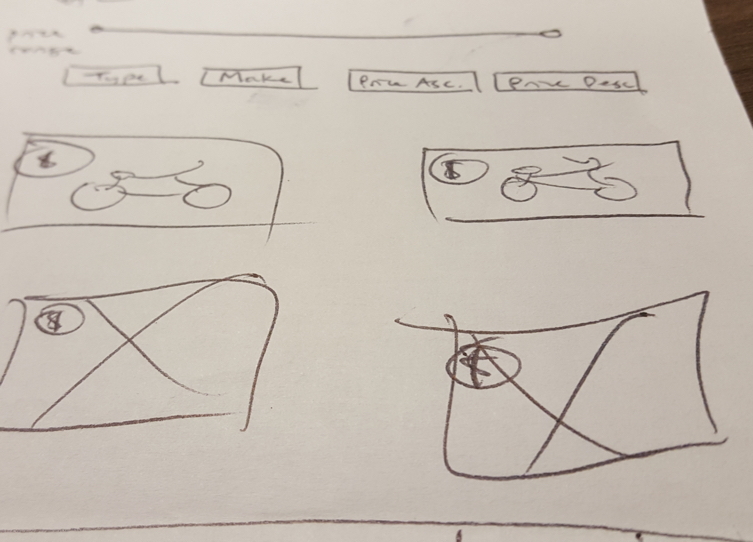 price
range
Type Make Price Asc. Price Desc
$ $
$ $